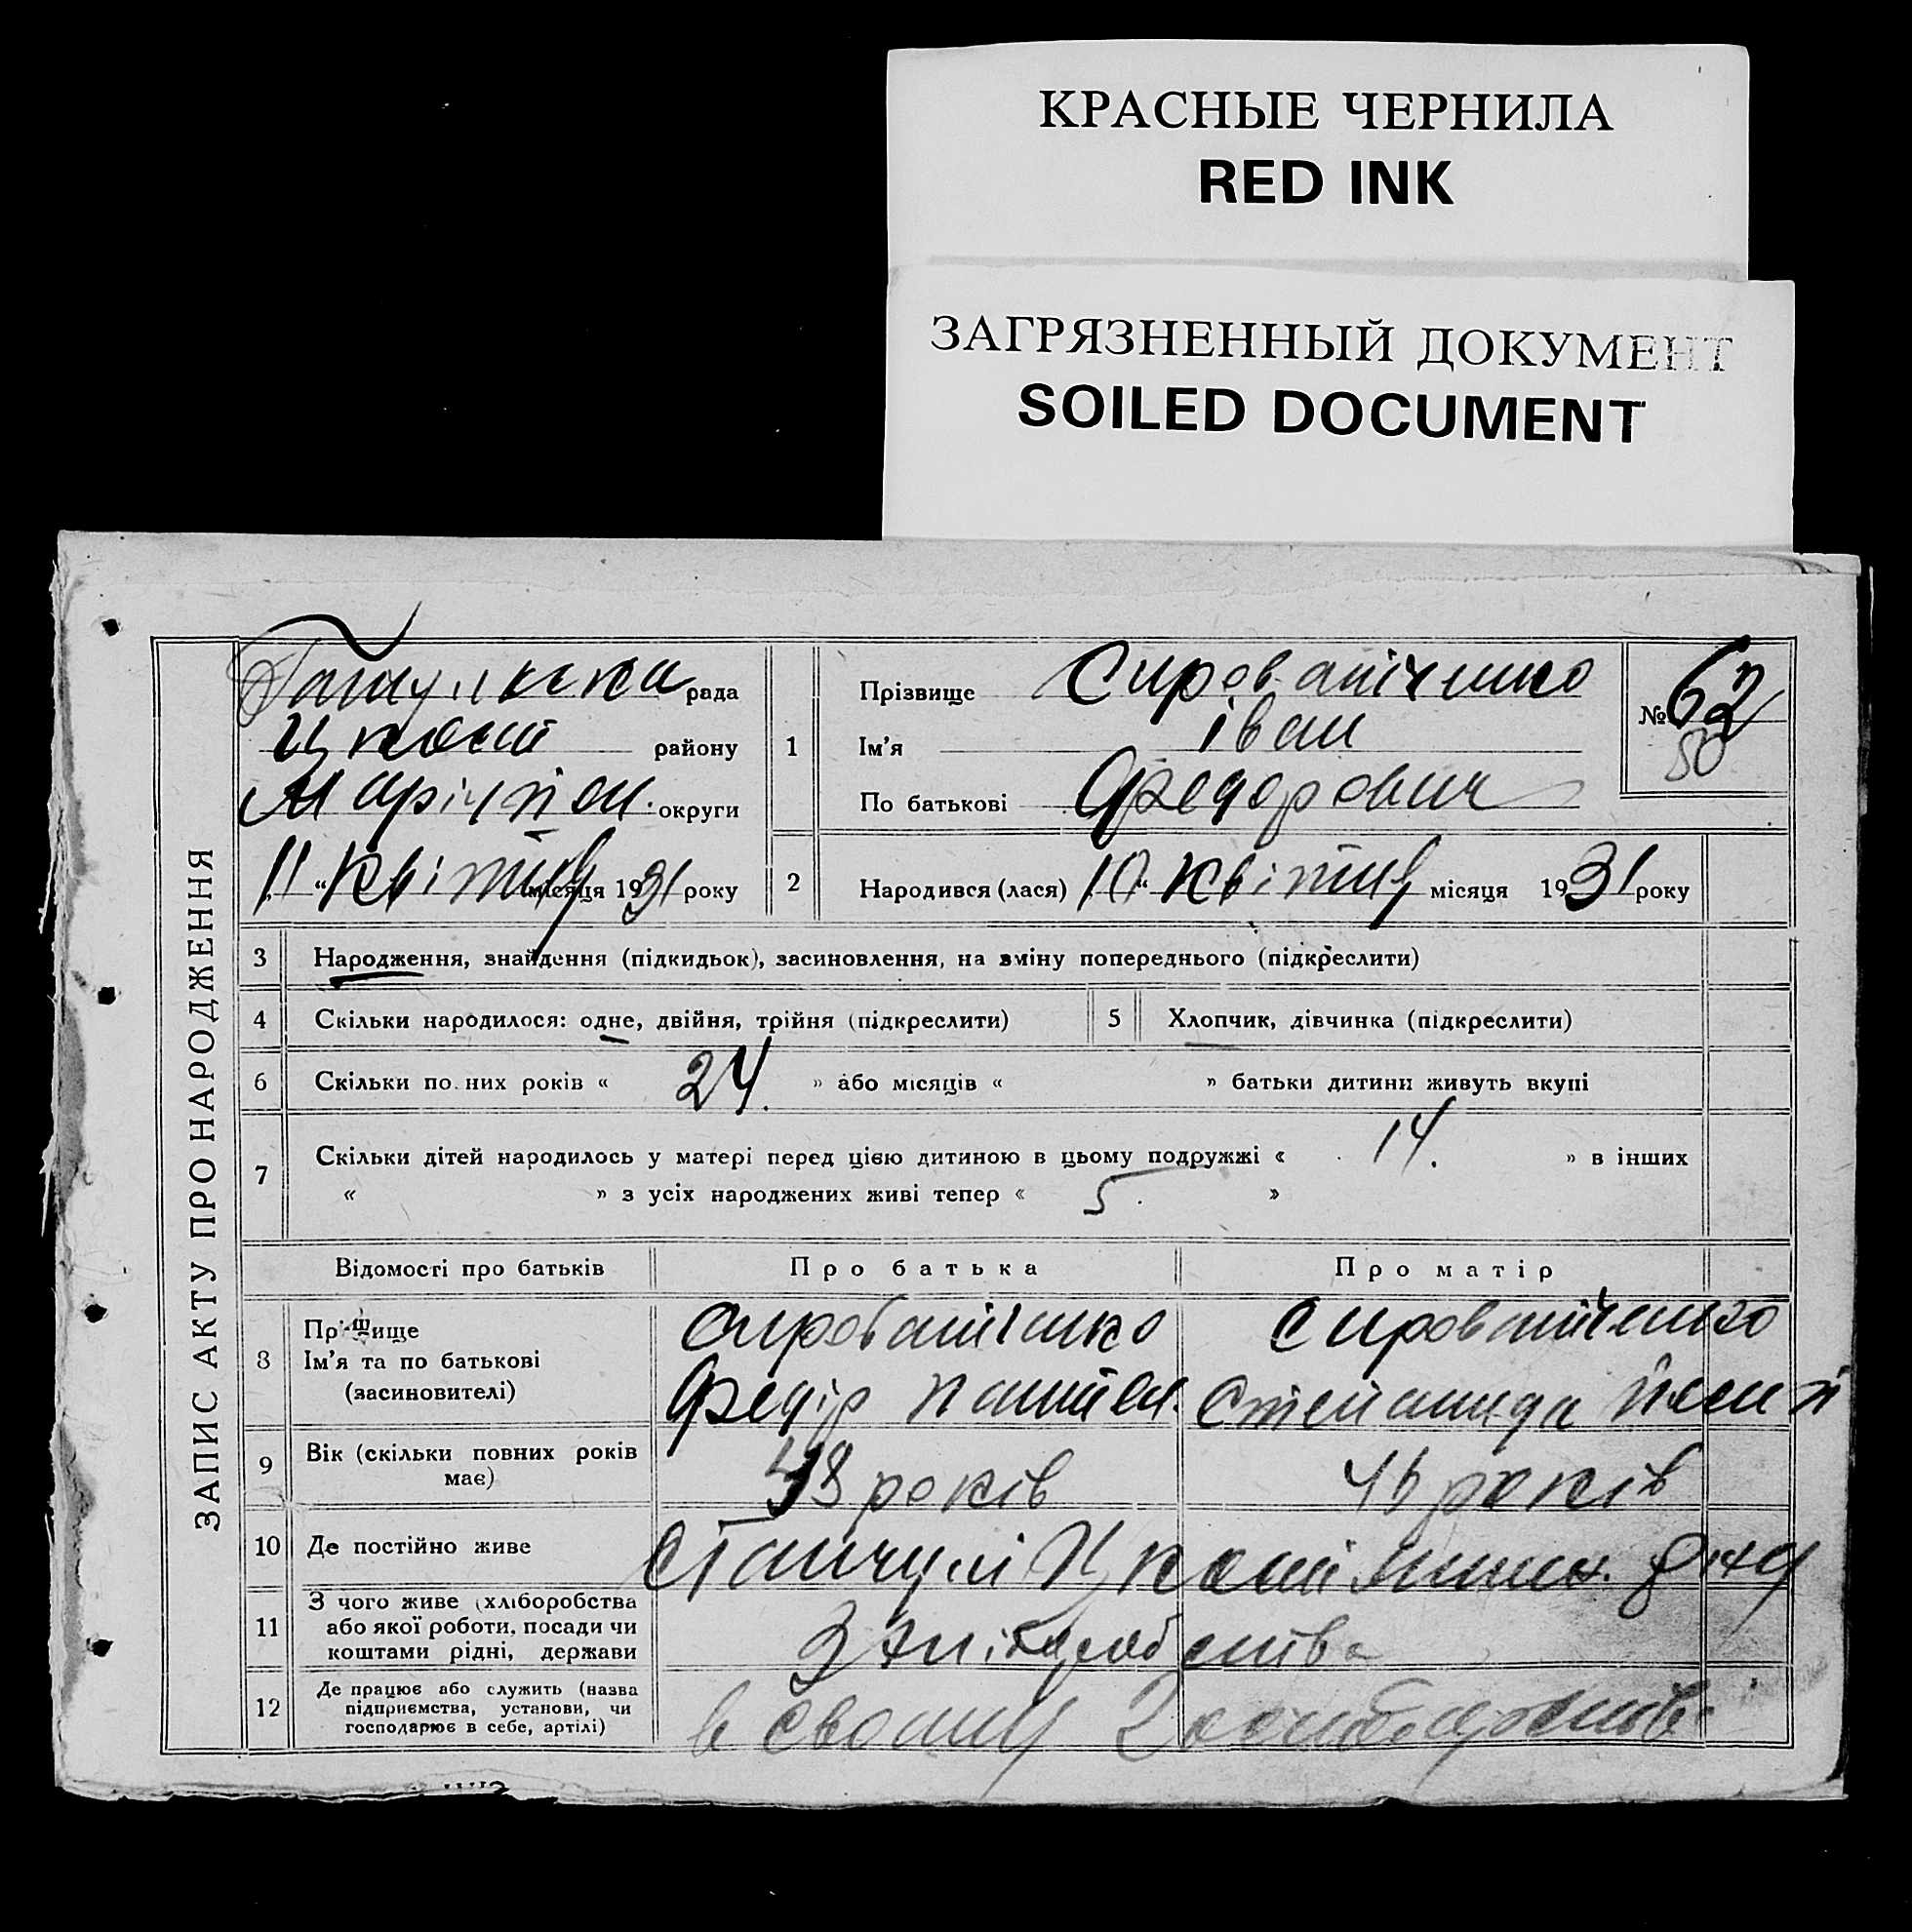 КРАСНЫЕ ЧЕРНИЛА
RED INK
ЗАГРЯЗНЕННЫЙ ДОКУМЕНТ
SOILED DOCUMENT
ЗАПИС АКТУ ПРО НАРОДЖЕННЯ
рада
району
округи
11 “ Квітня місяця 1931 року
1
Прізвище Сироватченко
Ім’я Іван
По батькові Федорович
№ 62
50
2
Народився (лася) 10 “ Квітня місяця 1931 року
3 Народження, знайдення (підкидьок), засиновлення, на зміну попереднього (підкреслити)
4 Скільки народилося: одне, двійня, трійня (підкреслити)
5 Хлопчик, дівчинка (підкреслити)
6 Скільки по них років « 24. » або місяців « » батьки дитини живуть вкупі
7 Скільки дітей народилось у матері перед цією дитиною в цьому подружжі « 14. » в інших
« » з усіх народжених живі тепер « 5. »
Відомості про батьків
Про батька
Про матір
8
Прізвище
Ім’я та по батькові
(засиновителі)
Федір
9 Вік (скільки повних років
має)
48 років
46 років
10 Де постійно живе
11 З чого живе (хліборобства
або якої роботи, посади чи
коштами рідні, держави
З хліборобства
12 Де працює або служить (назва
підприємства, установи, чи
господарює в себе, артілі)
в своему